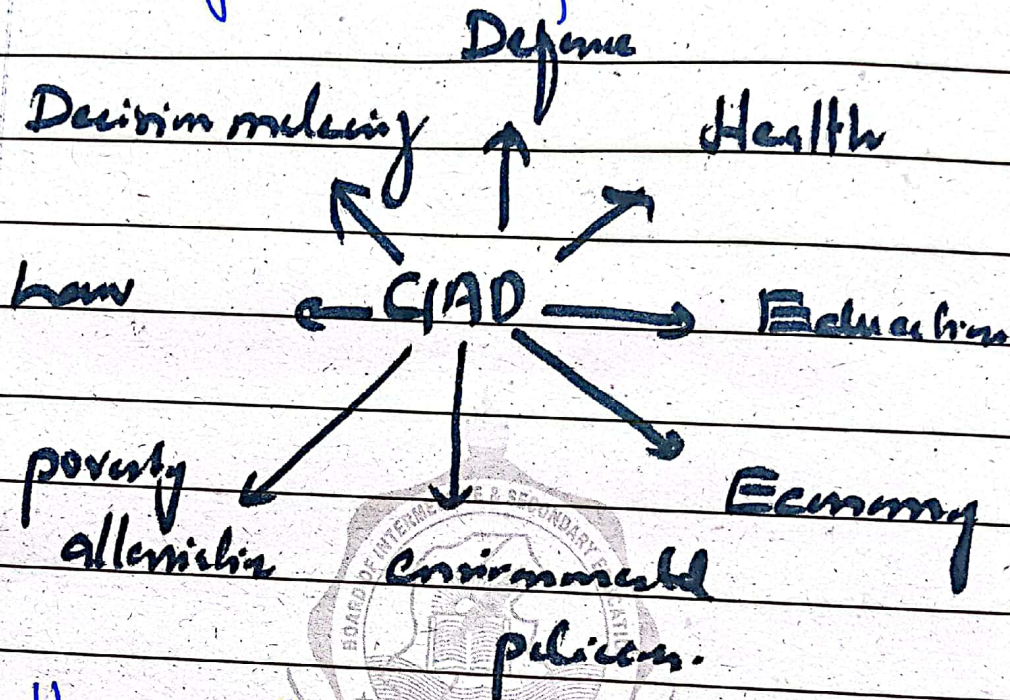 Defense
Decision making
Health
Law
GAD
Education
poverty
Economy
alleviation
environmental
policies.
BOARD OF INTERMEDIATE & SECONDARY EDUCATION